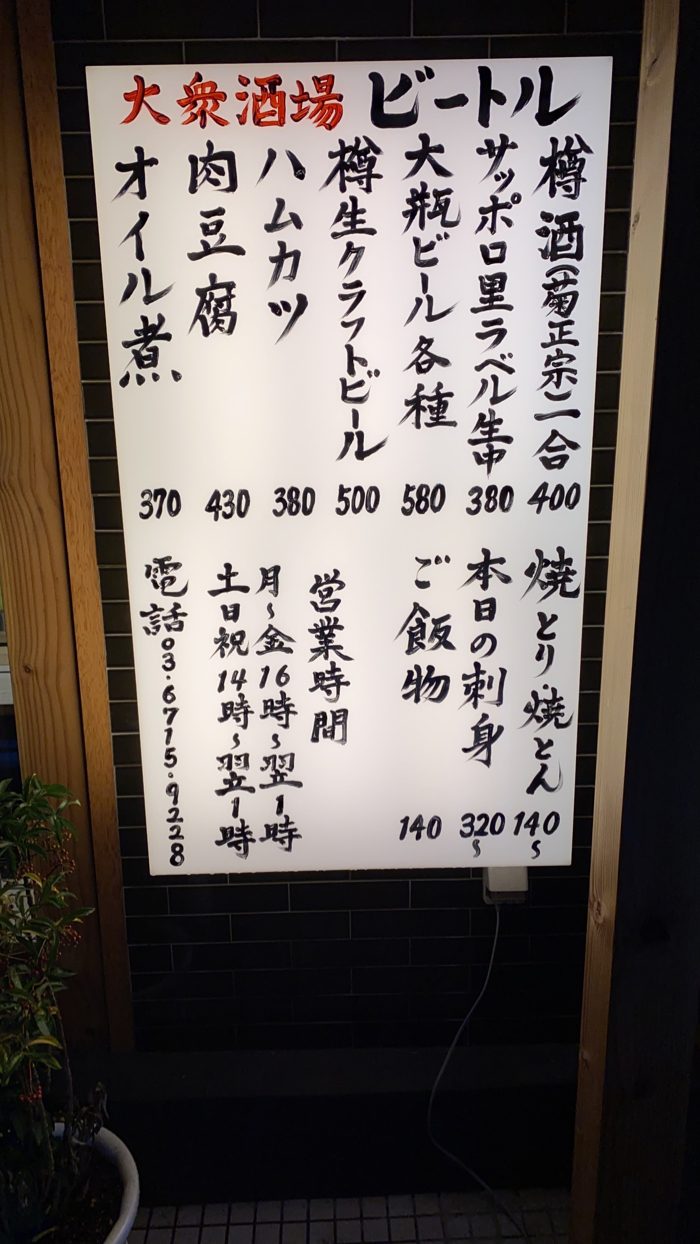 大衆酒場 ビートル
樽酒(菊正宗)二合 400
サッポロ黒ラベル生中 380
大瓶ビール各種 580
樽生クラフトビール 500
ハムカツ 380
肉豆腐 430
オイル煮 370
焼とり・焼とん 140〜
本日の刺身 320〜
ご飯物 140
営業時間
月〜金16時〜翌1時
土日祝14時〜翌1時
電話03.6715.9228